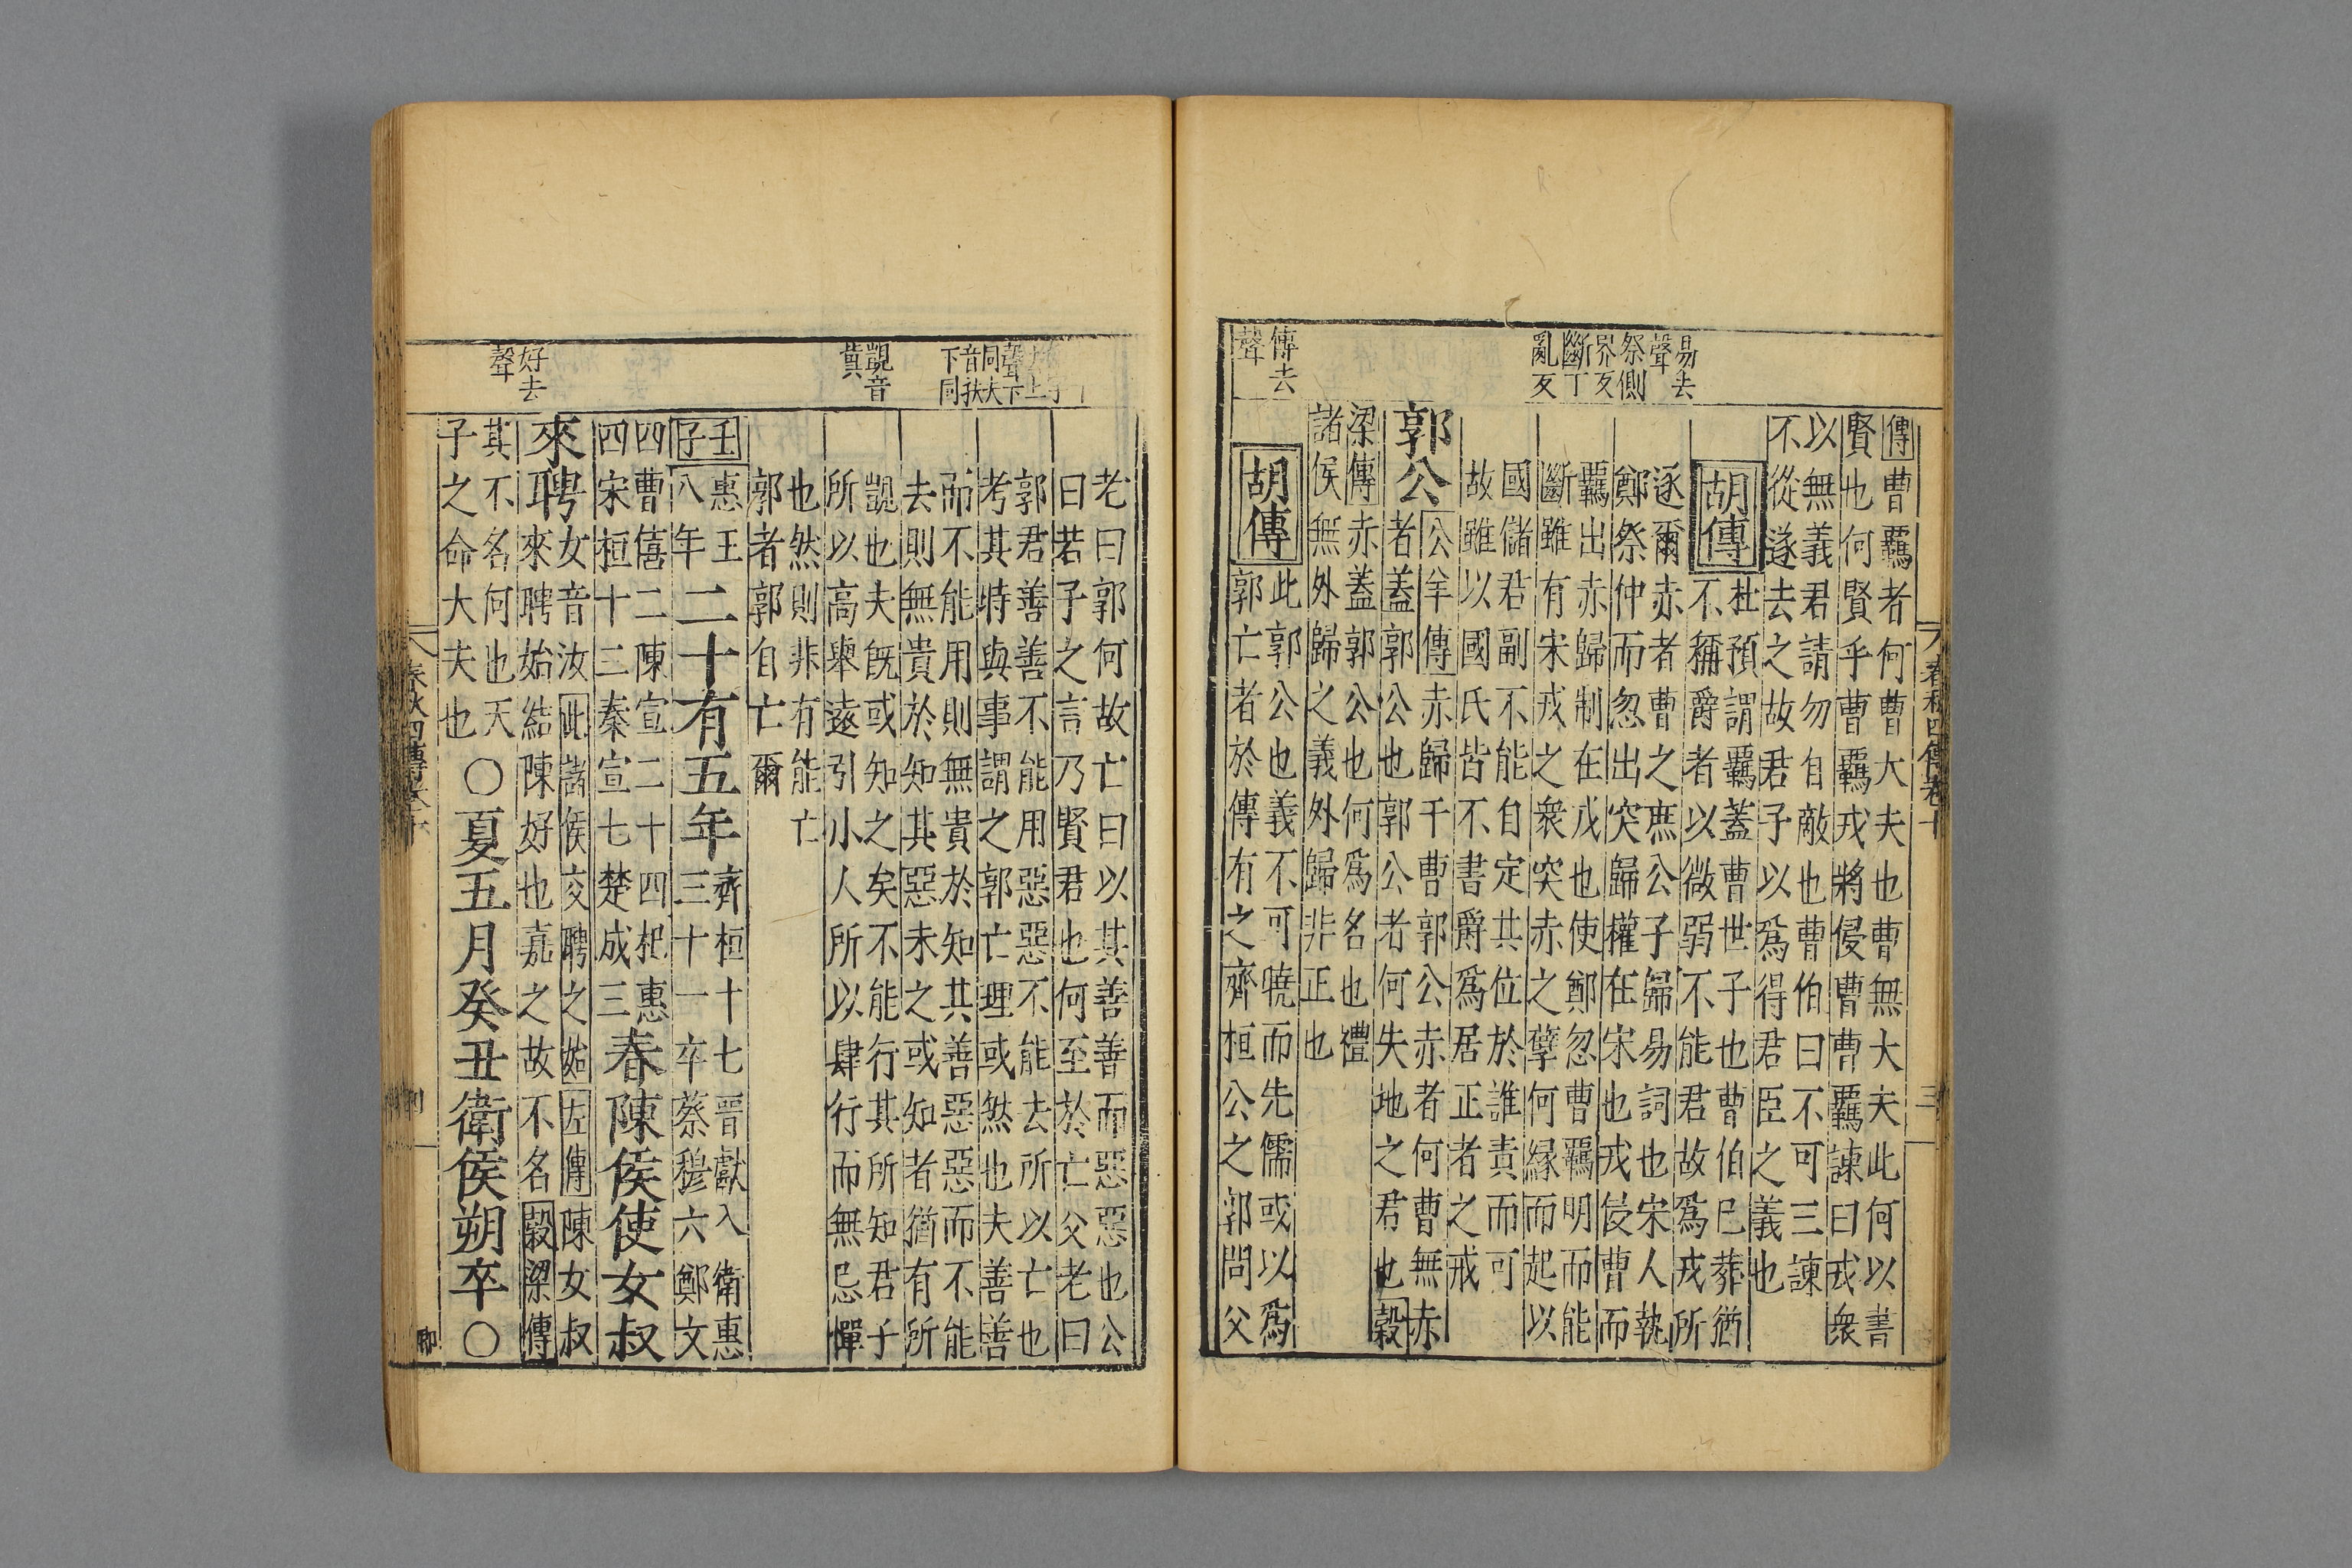 春秋四傳卷十
三
易去聲
祭側界反
斷丁亂反
傳去聲
傳曹羈者何曹大夫也曹無大夫此何以書
賢也何賢乎曹羈戎將侵曹曹羈諫曰戎衆
以無義君請勿自敵也曹伯曰不可三諫
不從遂去之故君子以爲得君臣之義也
胡傳
杜預謂羈蓋曹世子也曹伯已葬猶
不稱爵者以微弱不能君故爲戎所
逐爾赤者曹之庶公子歸易詞也宋人執
鄭祭仲而忽出突歸權在宋也戎侵曹而
羈出赤歸制在戎也使鄭忽曹羈明而能
斷雖有宋戎之衆突赤之孽何縁而起以
國儲君副不能自定其位於誰責而可
故雖以國氏皆不書爵爲居正者之戒
郭公
公羊傳赤歸于曹郭公赤者何曹無赤
者蓋郭公也郭公者何失地之君也穀
梁傳赤蓋郭公也何爲名也禮
諸侯無外歸之義外歸非正也
胡傳
此郭公也義不可曉而先儒或以爲
郭亡者於傳有之齊桓公之郭問父
音扶下同
覬音冀
好去聲
老曰郭何故亡曰以其善善而惡惡也公
曰若子之言乃賢君也何至於亡父老曰
郭君善善不能用惡惡不能去所以亡也
考其時與事謂之郭亡理或然也夫善善
而不能用則無貴於知其善惡惡而不能
去則無貴於知其惡未之或知者猶有所
覬也夫旣或知之矣不能行其所知君子
所以高舉遠引小人所以肆行而無忌憚
也然則非有能亡
郭者郭自亡爾
壬子
惠王八年
二十有五年
齊桓十七晋獻八衛惠
三十一卒蔡穆六鄭文
四曹僖二陳宣二十四杞惠
四宋桓十二秦宣七楚成三
春陳侯使女叔
來聘
女音汝此諸侯交聘之始左傳陳女叔
來聘始結陳好也嘉之故不名穀梁傳
其不名何也天
子之命大夫也
〇夏五月癸丑衛侯朔卒〇
春秋四傳卷十